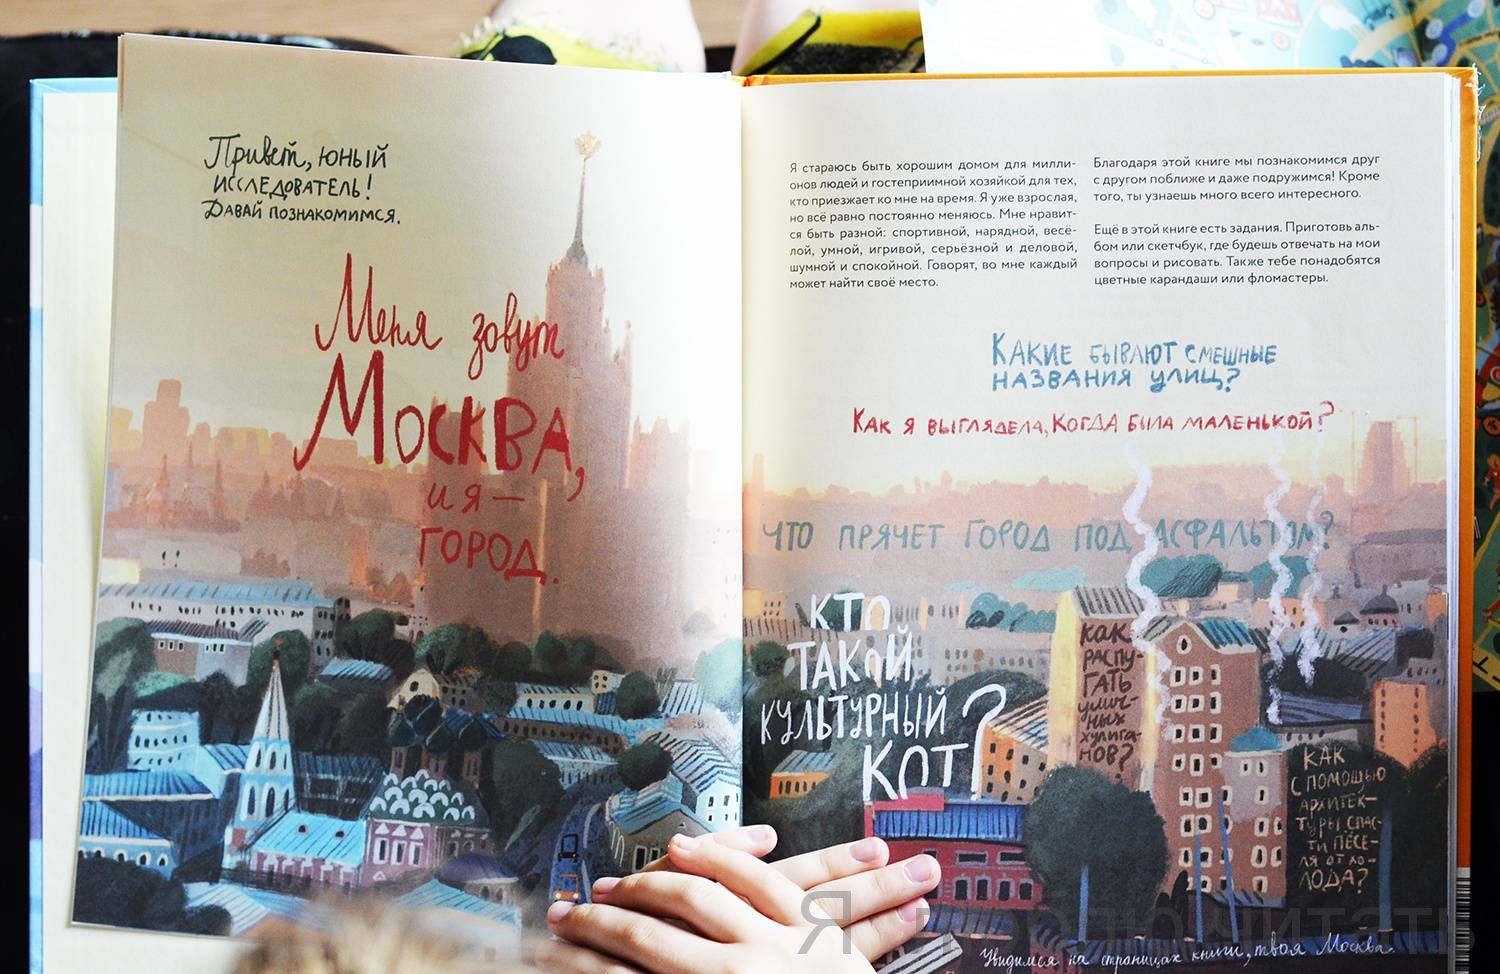 Привет, юный
исследователь!
Давай познакомимся.
Меня зовут
Москва,
и я —
город.
Я стараюсь быть хорошим домом для милли-
онов людей и гостеприимной хозяйкой для тех,
кто приезжает ко мне на время. Я уже взрослая,
но всё равно постоянно меняюсь. Мне нравит-
ся быть разной: спортивной, нарядной, весё-
лой, умной, игривой, серьёзной и деловой,
шумной и спокойной. Говорят, во мне каждый
может найти своё место.
Благодаря этой книге мы познакомимся друг
с другом поближе и даже подружимся! Кроме
того, ты узнаешь много всего интересного.
Ещё в этой книге есть задания. Приготовь аль-
бом или скетчбук, где будешь отвечать на мои
вопросы и рисовать. Также тебе понадобятся
цветные карандаши или фломастеры.
Какие бывают смешные
названия улиц?
Как я выглядела, когда была маленькой?
Что прячет город под асфальтом?
Кто
такой
культурный
кот?
Как
распу-
гать
улич-
ных
хулига-
нов?
Как
с помощью
архитек-
туры спас-
ти пёсе-
ля от хо-
лода?
Увидимся на страницах книги, твоя Москва.
Я читать